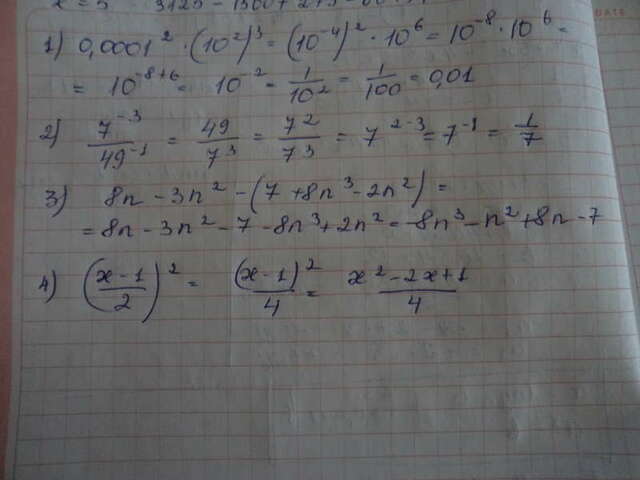 x = 5 3125 - 1500 + 275 -
1) 0,0001² · (10²)³ = (10⁻⁴)² · 10⁶ = 10⁻⁸ · 10⁶ =
= 10⁻⁸⁺⁶ = 10⁻² = 1/10² = 1/100 = 0,01
2) 7⁻³/49⁻¹ = 49/7³ = 7²/7³ = 7²⁻³ = 7⁻¹ = 1/7
3) 8n - 3n² - (7 + 8n³ - 2n²) =
= 8n - 3n² - 7 - 8n³ + 2n² = -8n³ - n² + 8n - 7
4) ((x - 1)/2)² = (x - 1)²/4 = (x² - 2x + 1)/4